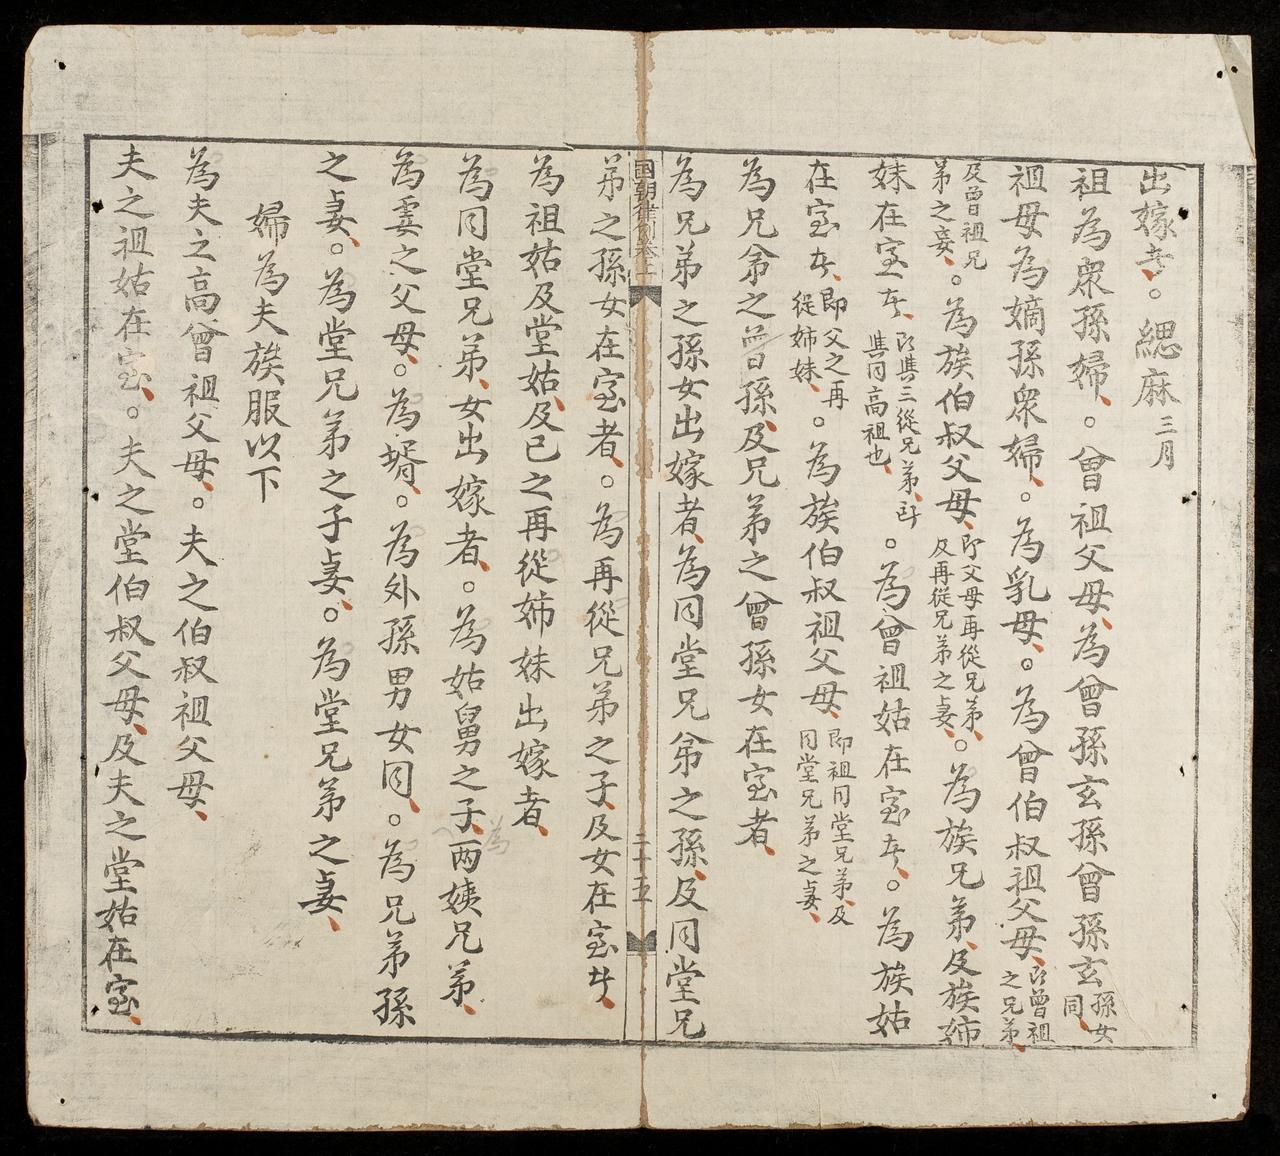 出嫁者。緦麻三月
祖為衆孫婦。曾祖父母為曾孫玄孫曾孫玄孫女同
祖母為嫡孫衆婦。為乳母。為曾伯叔祖父母即曾祖之兄弟
及曾祖兄弟之妻。為族伯叔父母即父母再從兄弟及再從兄弟之妻。為族兄弟及族姉
妹在室者即與三從兄弟即與同高祖也。為曾祖姑在室者。為族姑
在室者即父之再從姉妹。為族伯叔祖父母即祖同堂兄弟及同堂兄弟之妻
為兄弟之曾孫及兄弟之曾孫女在室者
為兄弟之孫女出嫁者為同堂兄弟之孫及同堂兄
国朝律例卷二 二十五
弟之孫女在室者。為再從兄弟之子及女在室者
為祖姑及堂姑及己之再從姉妹出嫁者
為同堂兄弟女出嫁者。為姑舅之子两姨兄弟
為妻之父母。為壻。為外孫男女同。為兄弟孫
之妻。為堂兄弟之子妻。為堂兄弟之妻
婦為夫族服以下
為夫之高曾祖父母。夫之伯叔祖父母
夫之祖姑在室。夫之堂伯叔父母及夫之堂姑在室